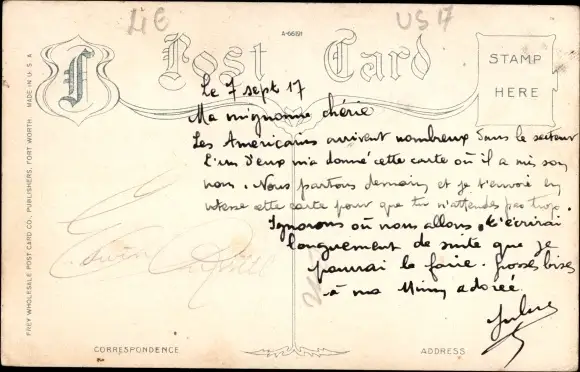 LIE
US 17
A-66191
Post Card
STAMP
HERE
MADE IN U.S.A
FREY WHOLESALE POST CARD CO., PUBLISHERS, FORT WORTH
Le 7 sept 17
Ma mignonne chérie
Les Américains arrivent nombreux dans le secteur
L'un d'eux m'a donné cette carte où il a mis son
nom. Nous partons demain et je t'envoie en
vitesse cette carte pour que tu n'attendes pas trop.
Ignorons où nous allons, t'écrirai
longuement de suite que je
pourrai le faire. grosses bises
à ma Mimy adorée.
Jules
Edwin
CORRESPONDENCE
ADDRESS